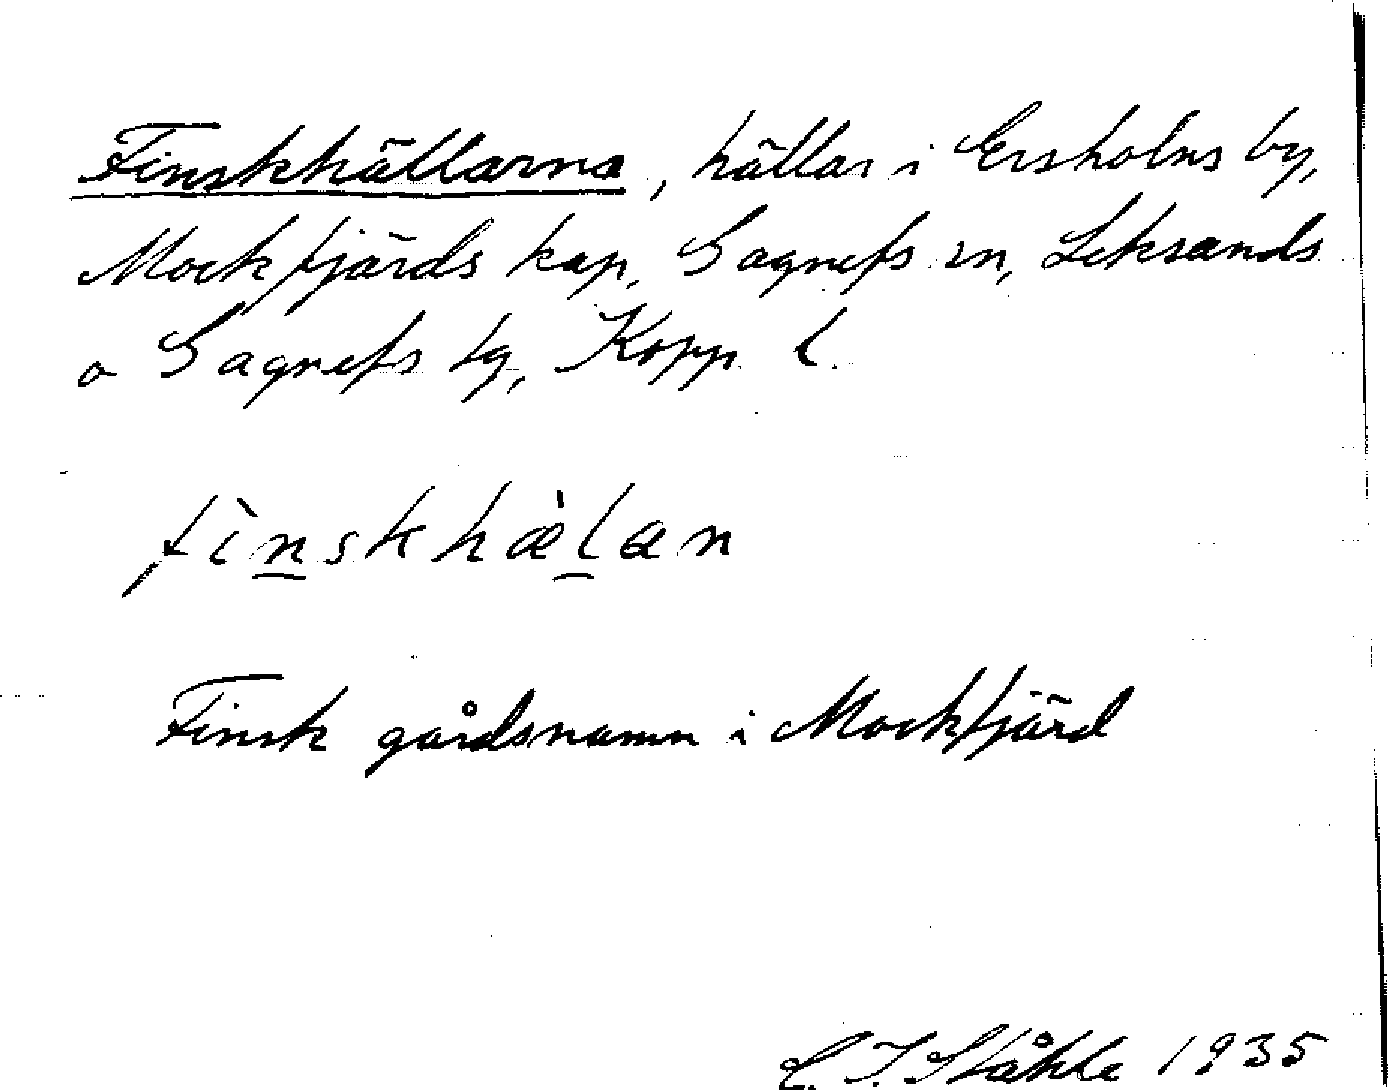 Finskhällarna, hällar i Ersholns by,
Mockfjärds kap, Gagnefs sn, Leksands
o Gagnefs tg, Kopp. l.
fìnskhæ̀lan
Finsk gårdsnamn i Mockfjärd
C. I. Ståhle 1935